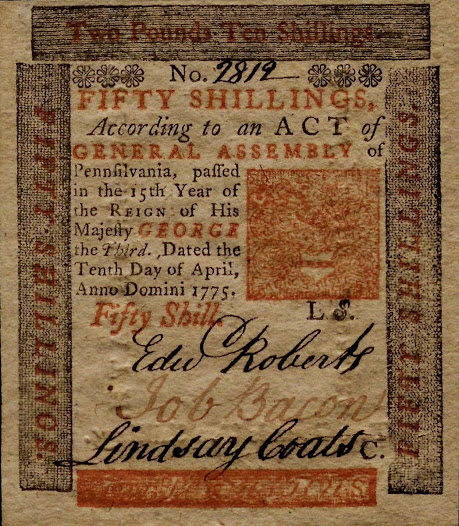 Two Pounds Ten Shillings.
No. 2812
FIFTY SHILLINGS,
According to an ACT of
GENERAL ASSEMBLY of
Pennſilvania, paſſed
in the 15th Year of
the REIGN of His
Majeſty GEORGE
the Third. Dated the
Tenth Day of April,
Anno Domini 1775.
Fifty Shill.
L S.
Edw Roberts
Job Bacon
Lindsay Coats C.
FIFTY SHILLINGS.
FIFTY SHILLINGS.